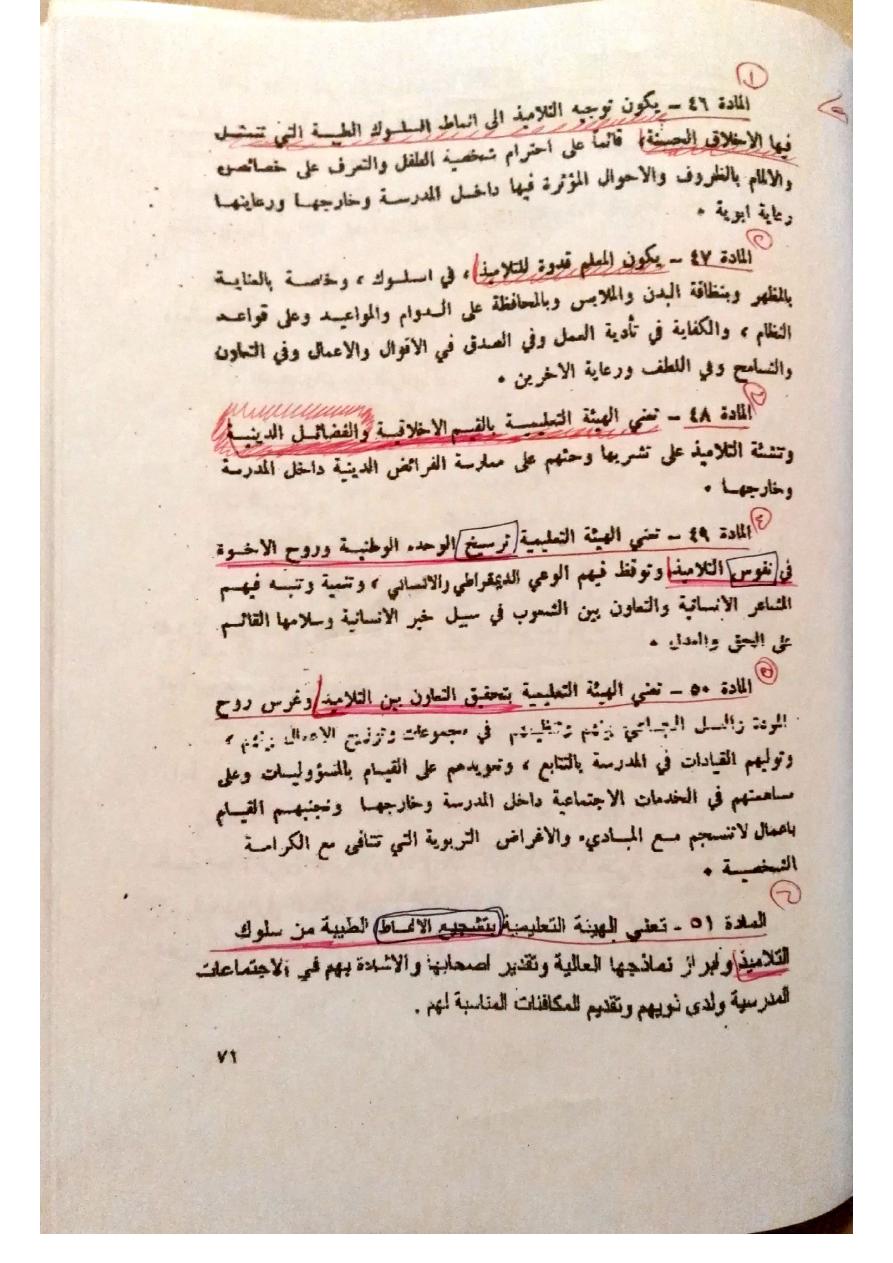 ١
المادة ٤٦ – يكون توجيه التلاميذ الى انماط السلوك الطيبة التي تتمثل
فيها الاخلاق الحسنة، قائماً على احترام شخصية الطفل والتعرف على خصائص
والالمام بالظروف والاحوال المؤثرة فيها داخل المدرسة وخارجها ورعايتها
رعاية ابوية .
٢
المادة ٤٧ – يكون المعلم قدوة للتلاميذ ، في السلوك ، وخاصة بالعناية
بالمظهر وبنظافة البدن والملابس وبالمحافظة على الدوام والمواعيد وعلى قواعد
النظام ، والكفاية في تأدية العمل وفي الصدق في الاقوال والاعمال وفي التعاون
والتسامح وفي اللطف ورعاية الاخرين .
٣
المادة ٤٨ – تعني الهيئة التعليمية بالقيم الاخلاقية والفضائل الدينية
وتنشئة التلاميذ على تشربها وحثهم على ممارسة الفرائض الدينية داخل المدرسة
وخارجها .
٤
المادة ٤٩ – تعني الهيئة التعليمية ترسيخ الوحده الوطنية وروح الاخوة
في نفوس التلاميذ وتوقظ فيهم الوعي الديمقراطي والانساني ، وتنمية وتنبه فيهم
المشاعر الانسانية والتعاون بين الشعوب في سبيل خير الانسانية وسلامها القائم
على الحق والعدل .
٥
المادة ٥٠ – تعني الهيئة التعليمية بتحقيق التعاون بين التلاميذ وغرس روح
المودة والعمل الجماعي بينهم وتنظيمهم في مجموعات وتوزيع الاعمال بينهم ،
وتوليهم القيادات في المدرسة بالتتابع ، وتعويدهم على القيام بالمسؤوليات وعلى
مساهمتهم في الخدمات الاجتماعية داخل المدرسة وخارجها وتجنبهم القيام
باعمال لاتنسجم مع المبادىء والاغراض التربوية التي تتنافى مع الكرامة
الشخصية .
٦
المادة ٥١ - تعني الهيئة التعليمية بتشجيع الانماط الطيبة من سلوك
التلاميذ وابراز نماذجها العالية وتقدير اصحابها والاشادة بهم في الاجتماعات
المدرسية ولدى ذويهم وتقديم المكافئات المناسبة لهم .
٧١